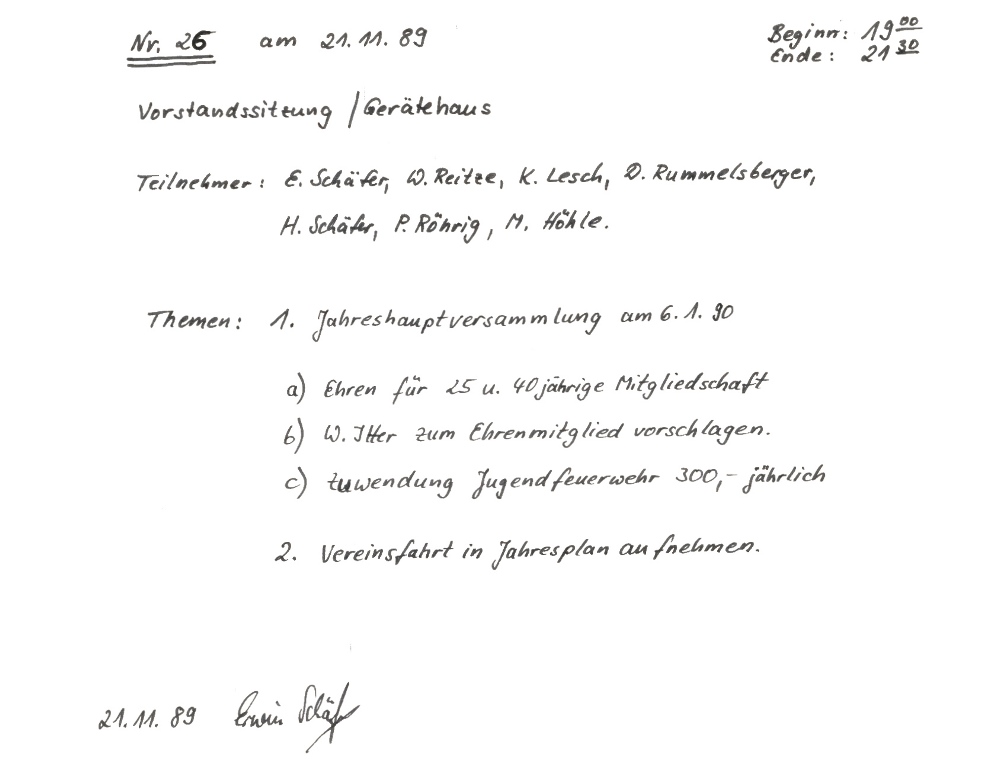 Nr. 26 am 21.11.89 Beginn: 19⁰⁰
Ende: 21³⁰
Vorstandssitzung / Gerätehaus
Teilnehmer: E. Schäfer, W. Reitze, K. Lesch, D. Rummelsberger,
H. Schäfer, P. Röhrig, M. Höhle.
Themen: 1. Jahreshauptversammlung am 6.1.90
a) Ehren für 25 u. 40 jährige Mitgliedschaft
b) W. Itter zum Ehrenmitglied vorschlagen.
c) Zuwendung Jugendfeuerwehr 300,- jährlich
2. Vereinsfahrt in Jahresplan aufnehmen.
21.11.89 Erwin Schäfer